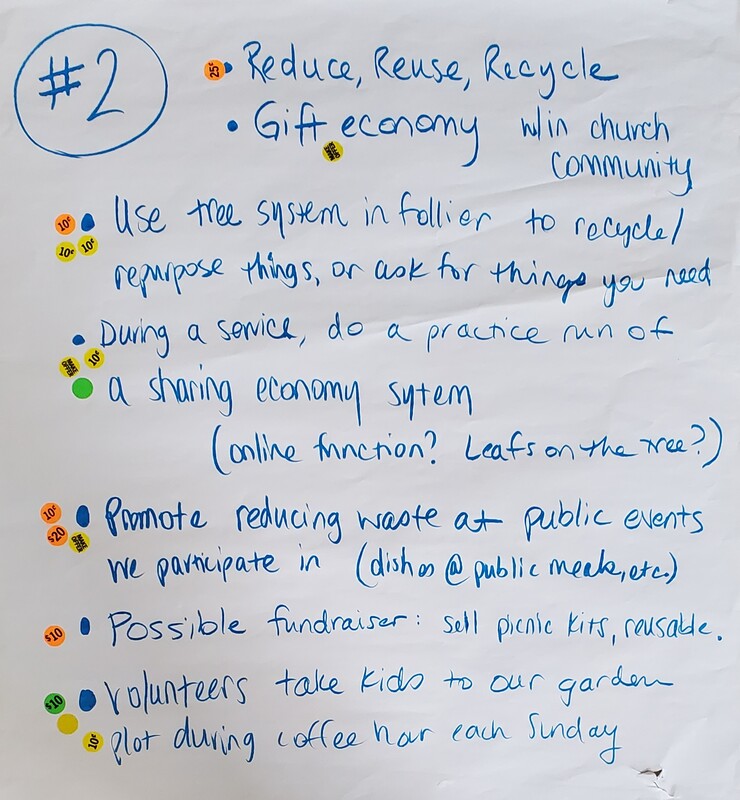 #2
25¢
• Reduce, Reuse, Recycle
• Gift economy w/in church
community
MAKE OFFER
10¢
• Use tree system in follier to recycle/
10¢ 10¢
repurpose things, or ask for things you need
• During a service, do a practice run of
MAKE OFFER 10¢
a sharing economy sytem
(online function? Leafs on the tree?)
10¢
• Promote reducing waste at public events
$20 MAKE OFFER
we participate in (dishes @ public meals, etc.)
$10
• Possible fundraiser: sell picnic kits, reusable.
$10
• Volunteers take kids to our garden
10¢
plot during coffee hour each Sunday